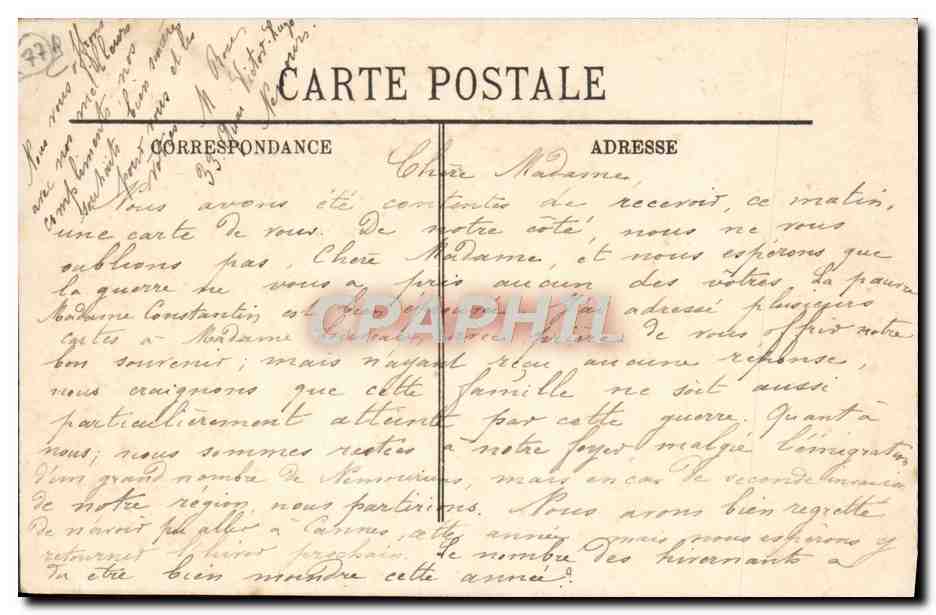 77
Nous vous offrons
avec nos meilleurs
compliments nos
souhaits bien sincères
pour vous et les
vôtres
M Roue
33 Quai Victor-Hugo
Nemours.
CARTE POSTALE
CORRESPONDANCE
ADRESSE
Chère Madame,
Nous avons été contentes de recevoir, ce matin,
une carte de vous. De notre côté, nous ne vous
oublions pas, Chère Madame, et nous espérons que
la guerre ne vous a pris aucun des vôtres. La pauvre
Madame Constantin est bien J'ai adressé plusieurs
cartes à Madame de vous offrir notre
bon souvenir; mais n'ayant reçu aucune réponse,
nous craignons que cette famille ne soit aussi
particulièrement atteinte par cette guerre. Quant à
nous; nous sommes restées à notre foyer malgré l'émigration
d'un grand nombre de Nemouriens, mais en cas de seconde invasion
de notre région, nous partirions. Nous avons bien regretté
de n'avoir pu aller à Cannes, cette année mais nous espérons y
retourner l'hiver prochain. Le nombre des hivernants a
du être bien moindre cette année?
CPAPHIL